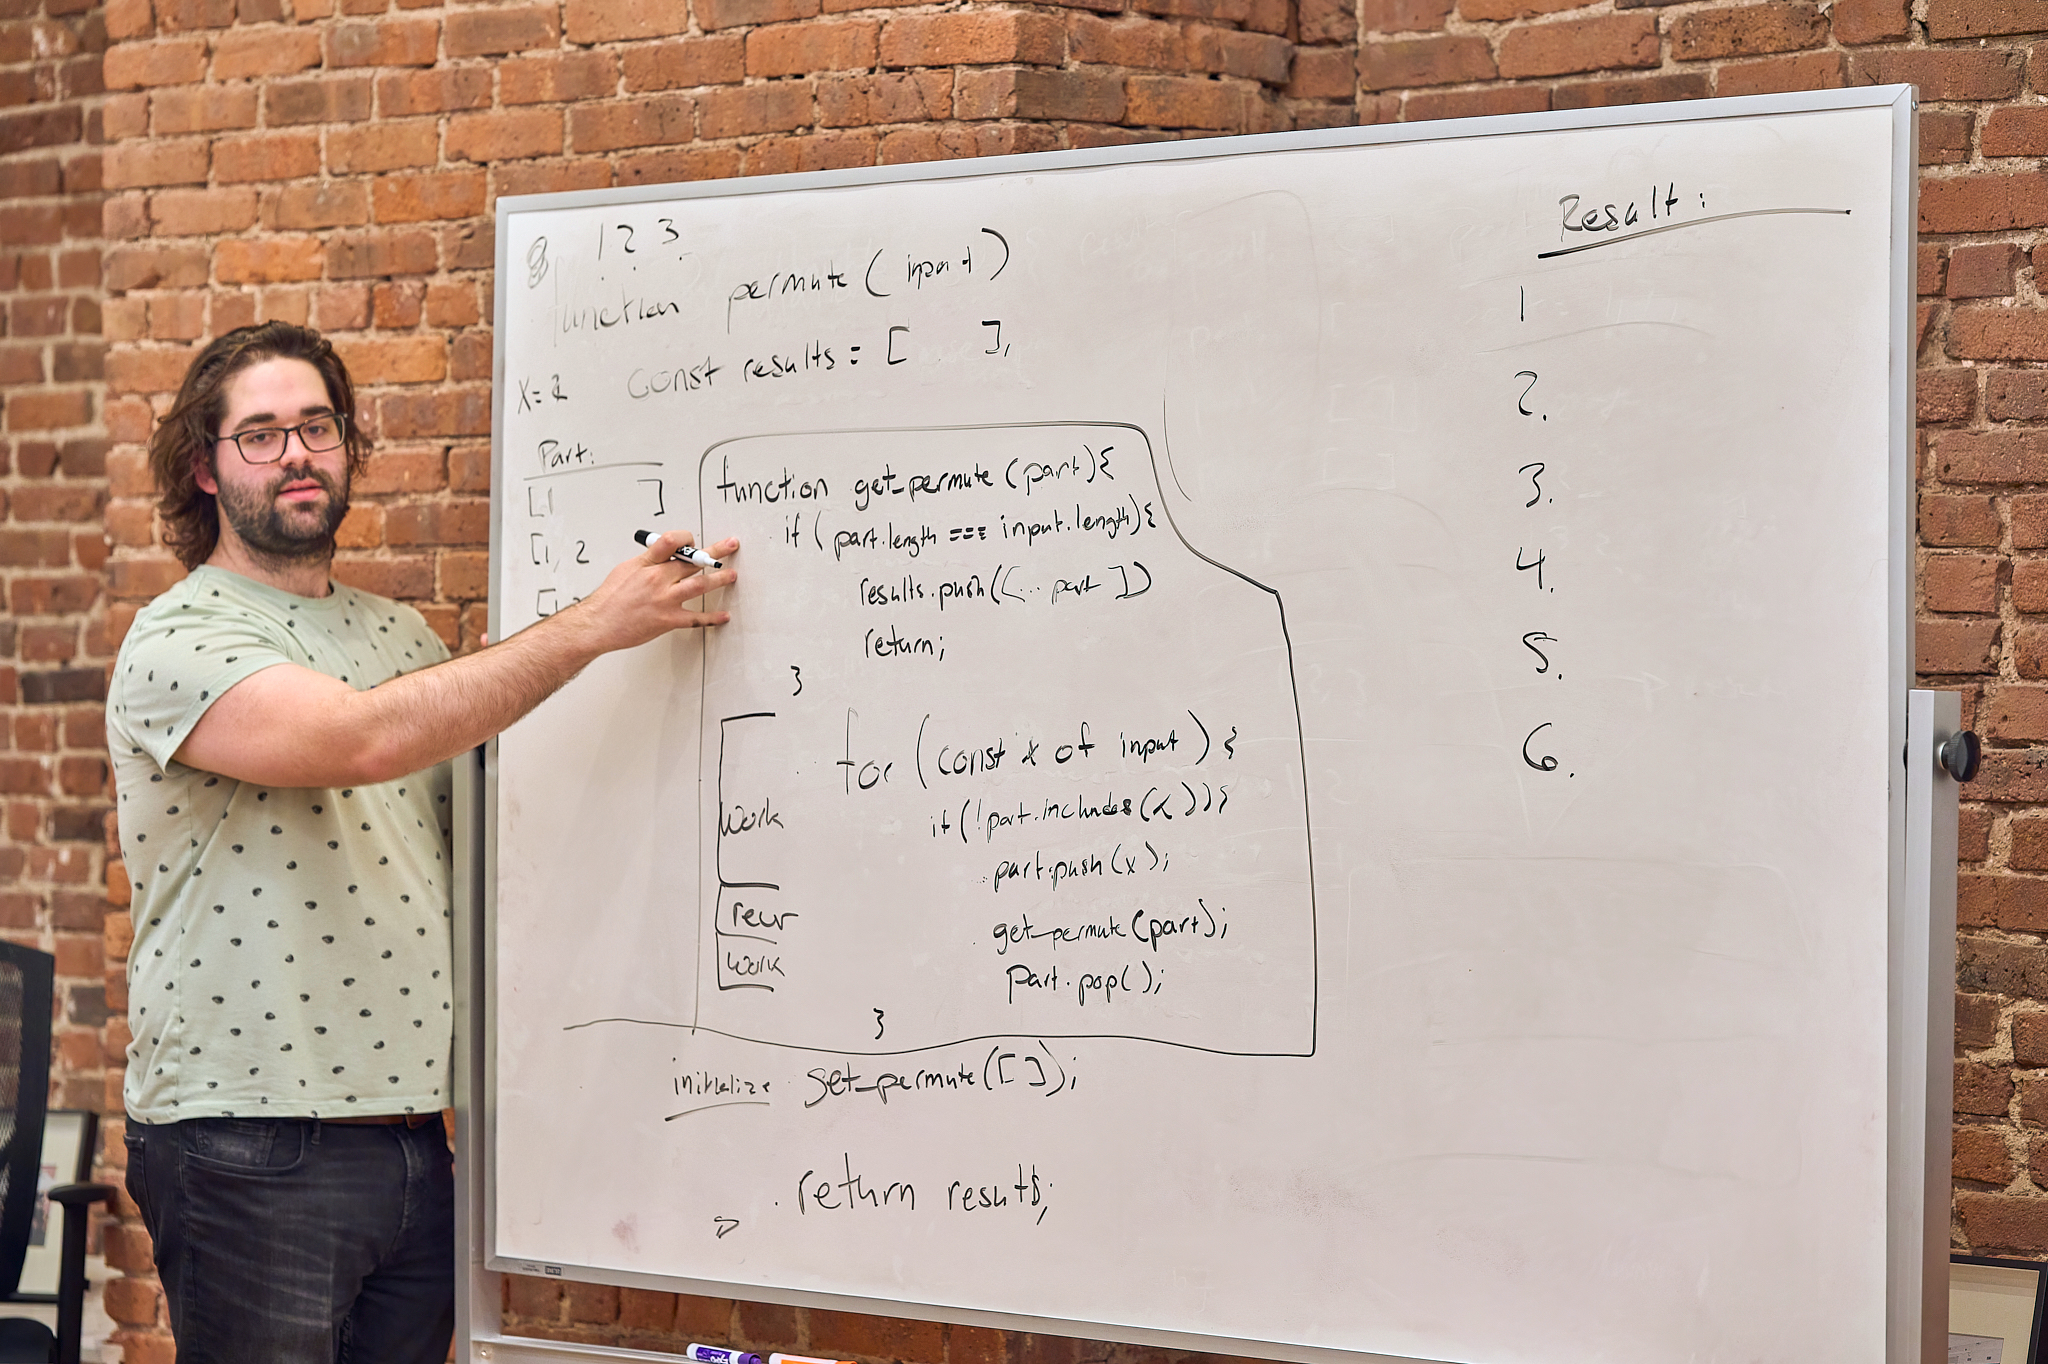 1 2 3
function permute ( input )
const results = [ ],
x = 2
Part:
[ 1 ]
[ 1, 2
function get_permute (part){
if ( part.length === input.length){
results.push([... part ])
return;
}
for ( const x of input ) {
if (!part.includes(x)){
part.push(x);
get_permute(part);
part.pop();
}
work
recur
work
initialize get_permute([ ]);
return results;
Result:
1
2.
3.
4.
5.
6.